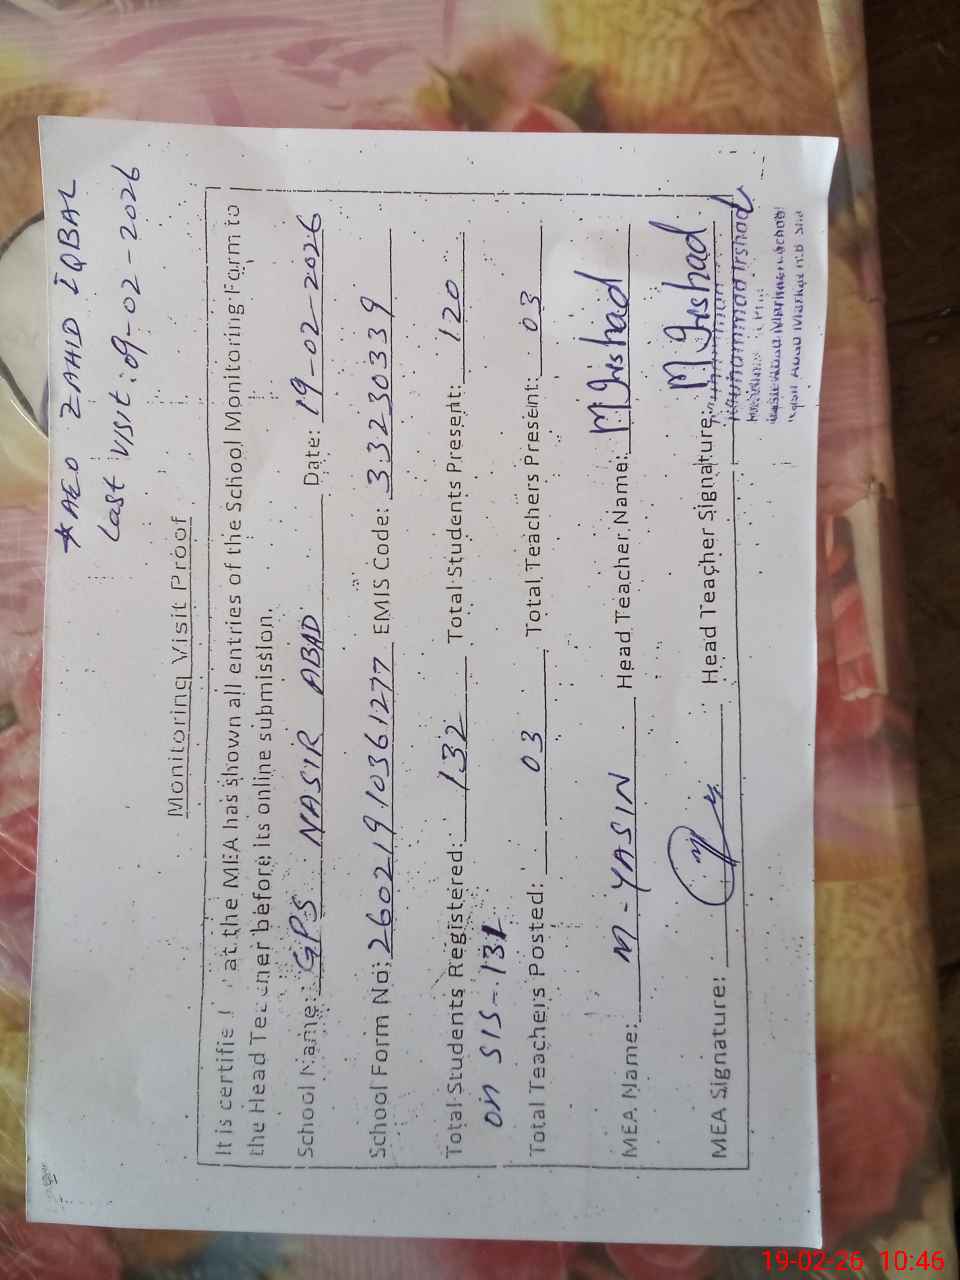 *AEO ZAHID IQBAL
Last Visit: 09-02-2026
Monitoring Visit Proof
It is certifie at the MEA has shown all entries of the School Monitoring Form to
the Head Teacher before its online submission.
School Name: GPS NASIR ABAD Date: 19-02-2026
School Form No: 2602191036 1277 EMIS Code: 33230339
Total Students Registered: 132 Total Students Present: 120
on SIS - 131
Total Teachers Posted: 03 Total Teachers Present: 03
MEA Name: M-YASIN Head Teacher Name: M Irshad
MEA Signature: Head Teacher Signature: M Irshad
Muhammad Irshad
19-02-26 10:46